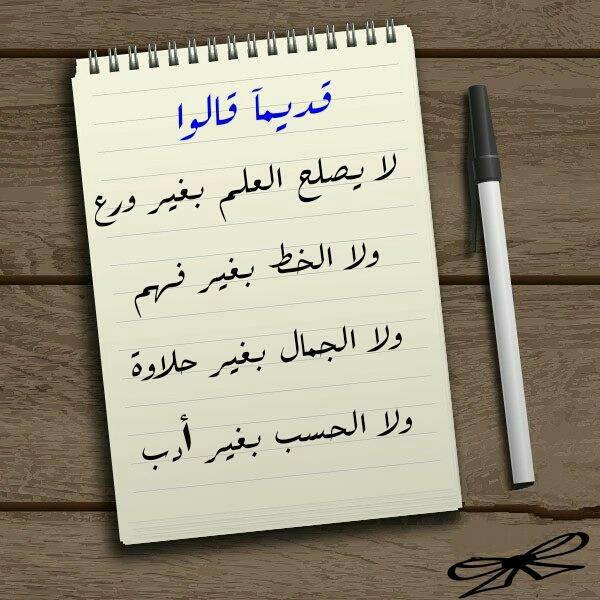 قديمآ قالوا
لا يصلح العلم بغير ورع
ولا الخط بغير فهم
ولا الجمال بغير حلاوة
ولا الحسب بغير أدب